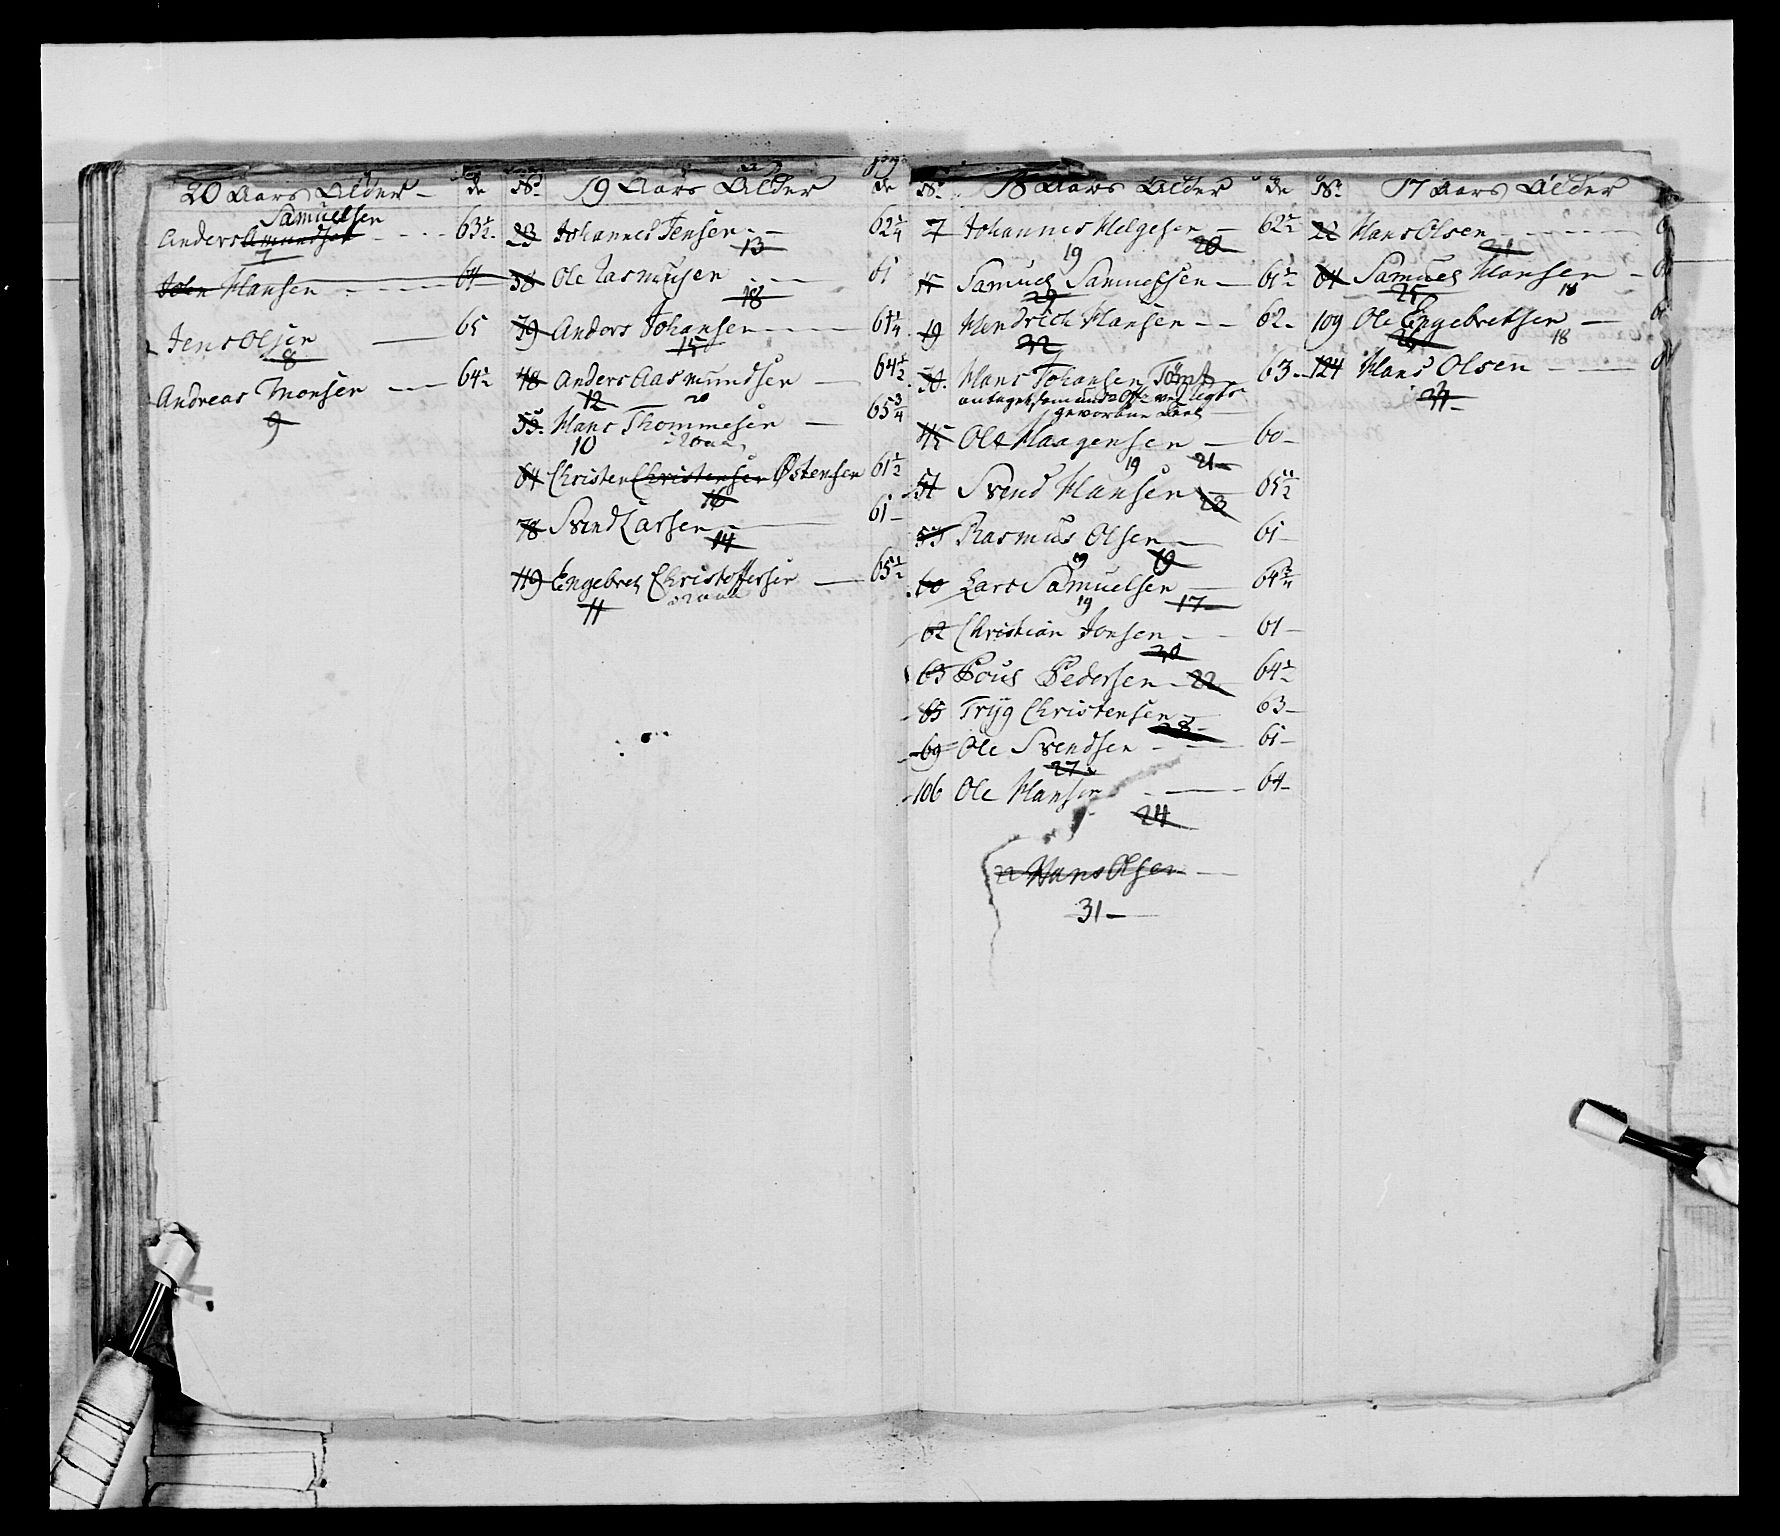 20 Aars Alder - de
Samuelsen
Anders Amundsen - - - - 63½
7
John Hansen - - - - 64
Jens Olsen — 65
8
Andreas Monsen - - 64½
9
No 19 Aars Alder de
23 Johannes Jensen - - 62¼
13
38 Ole Rasmusen - - 61
18
39 Anders Johansen - - - - 61¼
15
48 Anders Aasmundsen — 64½
12 20
55 Hans Thommesen — 65¾
10
64 Christen Christensen Østensen 61½
16
78 Svend Larsen — 61 -
14
119 Engebret Christoffersen — 65½
11
No 18 Aars Alder de
7 Johannes Helgesen — 62½
19 20
15 Samuel Samuelsen — 61½
29
19 Hendrich Hansen - - 62 -
32
30 Hans Johansen Tømt 63 -
gevorbne
45 Ole Haagensen — 60 -
19 21
51 Svend Hansen 65½
23
53 Rasmus Olsen — 61 -
19 19
60 Lars Samuelsen — 64¾
19 17
62 Christian Jonsen - - 61 -
30
63 Pouel Pedersen - 22 64½
65 Tryg Christensen 63 -
28
69 Ole Svendsen - - 61 -
27
106 Ole Hansen - — 64 -
24
22 Hans Olsen —
31 -
No 17 Aars Alder
22 Hans Olsen - - - - -
64 Samuel Hansen -
25 18
109 Ole Engebretsen —
26 18
124 Hans Olsen - —